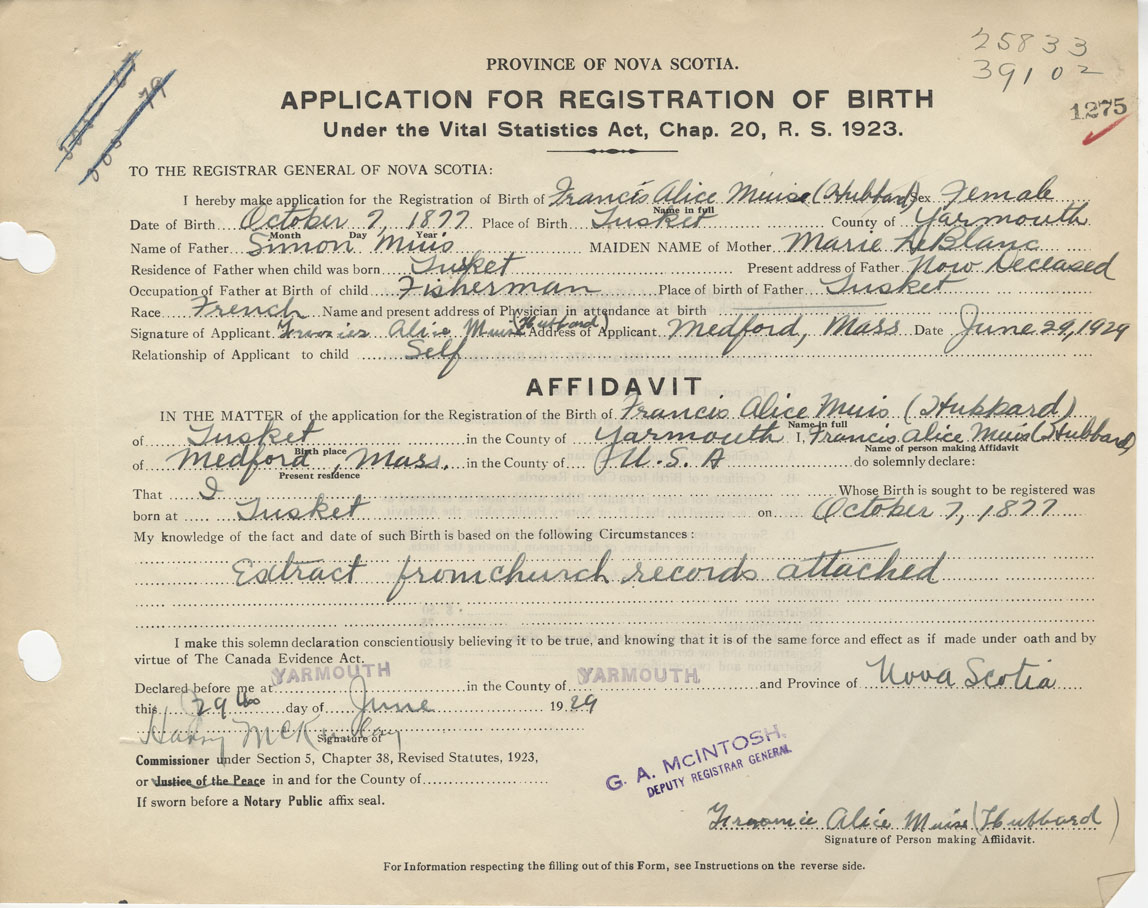 25833
39102
1275
PROVINCE OF NOVA SCOTIA.
APPLICATION FOR REGISTRATION OF BIRTH
Under the Vital Statistics Act, Chap. 20, R. S. 1923.
TO THE REGISTRAR GENERAL OF NOVA SCOTIA:
I hereby make application for the Registration of Birth of Francis Alice Muise (Hubbard) Sex Female
Name in full
Date of Birth October 7, 1877 Place of Birth Tusket County of Yarmouth
Month Day Year
Name of Father Simon Muis MAIDEN NAME of Mother Marie LeBlanc
Residence of Father when child was born Tusket Present address of Father Now Deceased
Occupation of Father at Birth of child Fisherman Place of birth of Father Tusket
Race French Name and present address of Physician in attendance at birth
Signature of Applicant Alice Muise (Hubbard) Address of Applicant Medford, Mass Date June 29, 1929
Relationship of Applicant to child Self
AFFIDAVIT
IN THE MATTER of the application for the Registration of the Birth of Francis Alice Muis (Hubbard)
Name in full
of Tusket in the County of Yarmouth I, Francis Alice Muis (Hubbard)
Birth place Name of person making Affidavit
of Medford, Mass. in the County of U.S.A do solemnly declare:
Present residence
That I Whose Birth is sought to be registered was
born at Tusket on October 7, 1877
My knowledge of the fact and date of such Birth is based on the following Circumstances:
Extract from church records attached
I make this solemn declaration conscientiously believing it to be true, and knowing that it is of the same force and effect as if made under oath and by
virtue of The Canada Evidence Act.
Declared before me at YARMOUTH in the County of YARMOUTH and Province of Nova Scotia
this 29th day of June 1929
Harry McKinlay
Signature of
Commissioner under Section 5, Chapter 38, Revised Statutes, 1923,
or Justice of the Peace in and for the County of
If sworn before a Notary Public affix seal.
G. A. McINTOSH.
DEPUTY REGISTRAR GENERAL
Alice Muise (Hubbard)
Signature of Person making Affidavit.
For Information respecting the filling out of this Form, see Instructions on the reverse side.